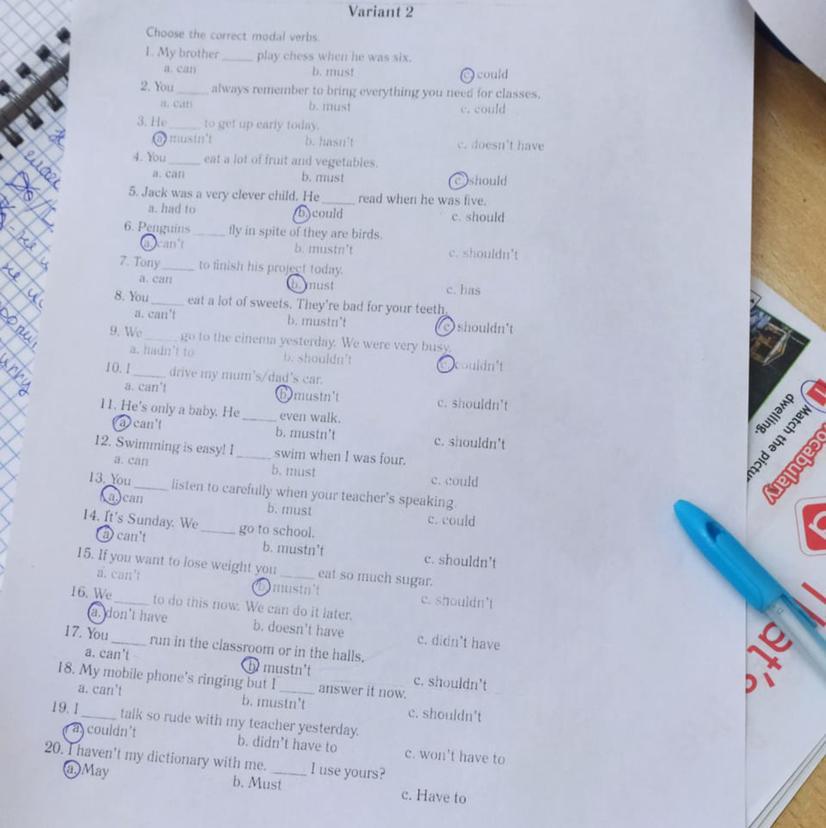 Variant 2
Choose the correct modal verbs.
1. My brother _____ play chess when he was six.
a. can b. must c. could
2. You _____ always remember to bring everything you need for classes.
a. can b. must c. could
3. He _____ to get up early today.
a. mustn't b. hasn't c. doesn't have
4. You _____ eat a lot of fruit and vegetables.
a. can b. must c. should
5. Jack was a very clever child. He _____ read when he was five.
a. had to b. could c. should
6. Penguins _____ fly in spite of they are birds.
a. can't b. mustn't c. shouldn't
7. Tony _____ to finish his project today.
a. can b. must c. has
8. You _____ eat a lot of sweets. They're bad for your teeth.
a. can't b. mustn't c. shouldn't
9. We _____ go to the cinema yesterday. We were very busy.
a. hadn't to b. shouldn't c. couldn't
10. I _____ drive my mum's/dad's car.
a. can't b. mustn't c. shouldn't
11. He's only a baby. He _____ even walk.
a. can't b. mustn't c. shouldn't
12. Swimming is easy! I _____ swim when I was four.
a. can b. must c. could
13. You _____ listen to carefully when your teacher's speaking.
a. can b. must c. could
14. It's Sunday. We _____ go to school.
a. can't b. mustn't c. shouldn't
15. If you want to lose weight you _____ eat so much sugar.
a. can't b. mustn't c. shouldn't
16. We _____ to do this now. We can do it later.
a. don't have b. doesn't have c. didn't have
17. You _____ run in the classroom or in the halls.
a. can't b. mustn't c. shouldn't
18. My mobile phone's ringing but I _____ answer it now.
a. can't b. mustn't c. shouldn't
19. I _____ talk so rude with my teacher yesterday.
a. couldn't b. didn't have to c. won't have to
20. I haven't my dictionary with me. _____ I use yours?
a. May b. Must c. Have to
ocabulary
1 Match the pictu
dwelling.